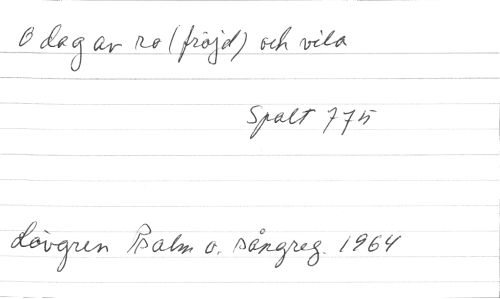 O dag av ro (fröjd) och vila
Spalt 775
Lövgren Psalm o. sångreg. 1964